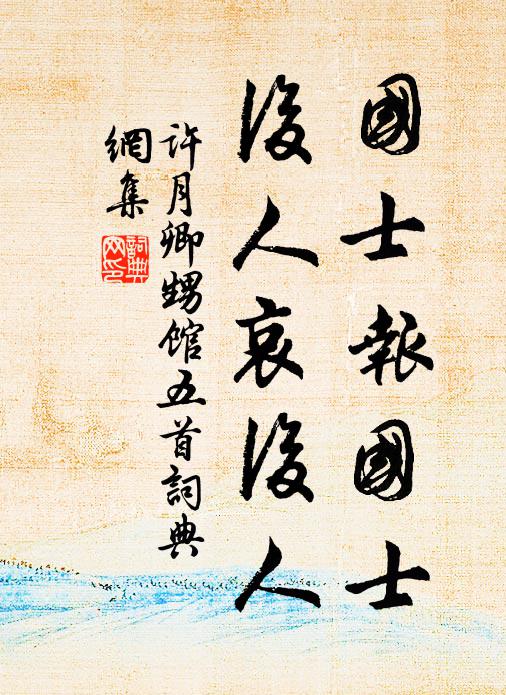 國士報國士
後人哀後人
許月卿甥館五首詞典
網集
詞典
网印